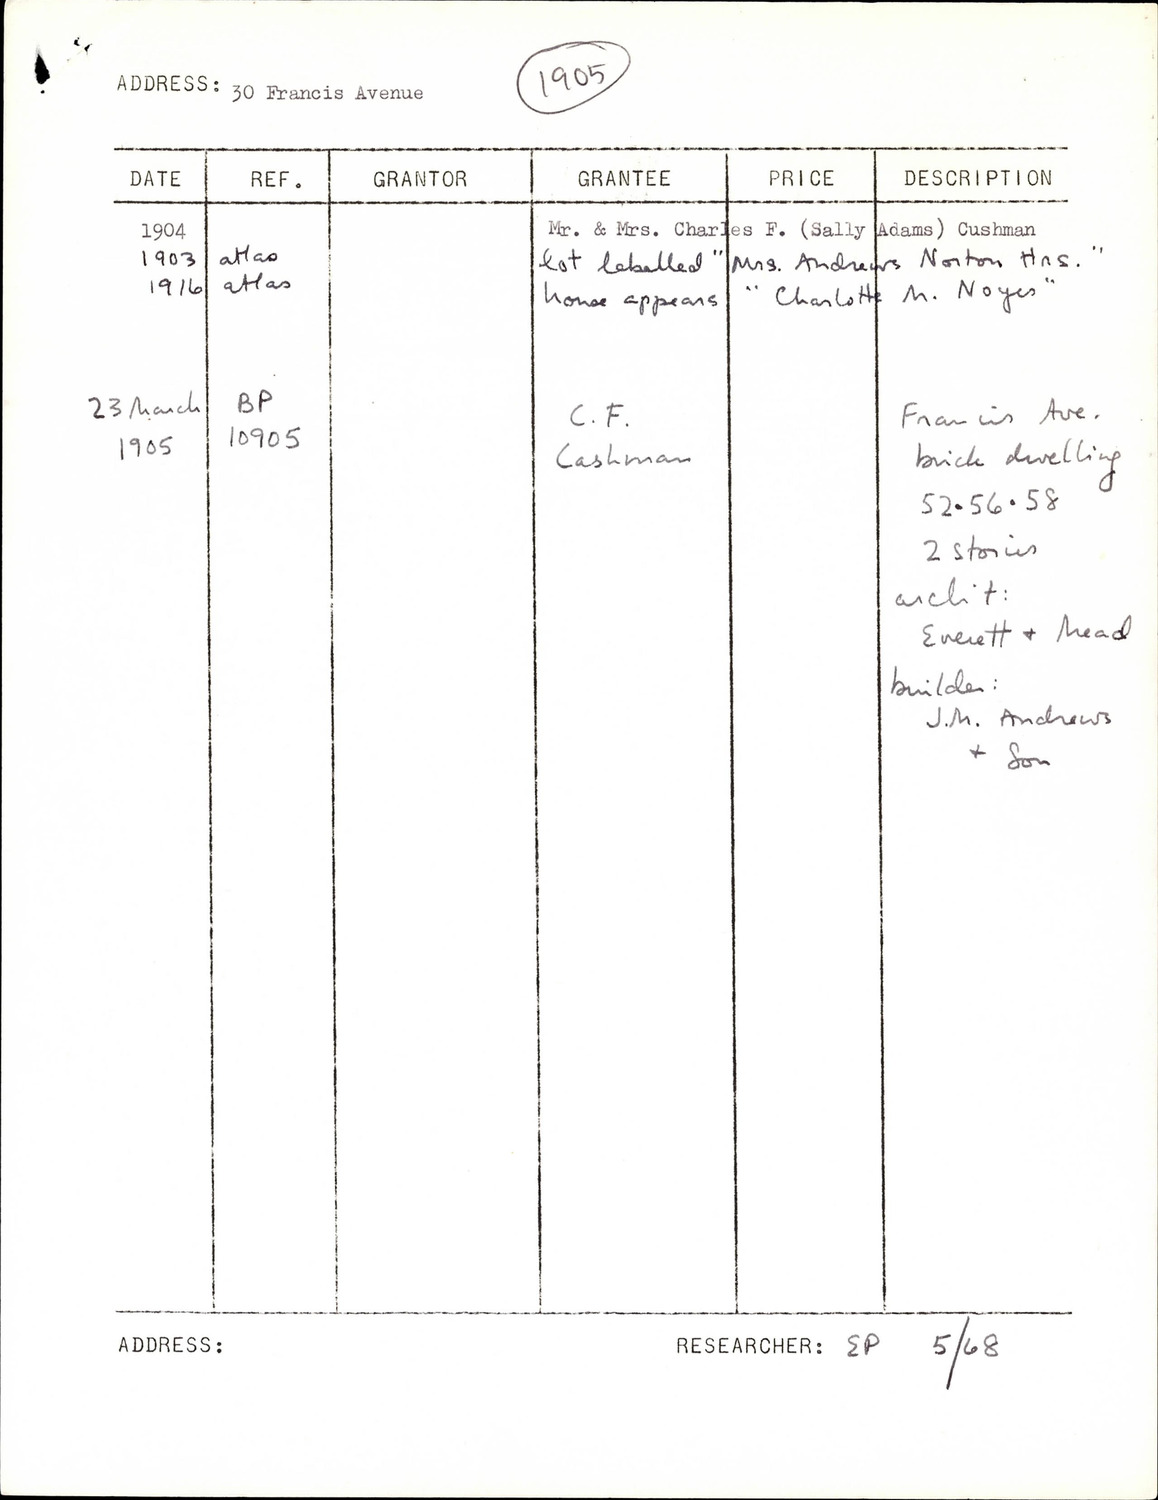 1905
ADDRESS: 30 Francis Avenue
DATE REF. GRANTOR GRANTEE PRICE DESCRIPTION
1904 Mr. & Mrs. Charles F. (Sally Adams) Cushman
1903 atlas lot labelled "Mrs. Andrews Norton Hrs."
1916 atlas house appears "Charlotte M. Noyes"
23 March BP C. F. Francis Ave.
1905 10905 Cashman brick dwelling
52·56·58
2 stories
archit:
Everett + Mead
builder:
J.M. Andrews
+ Son
ADDRESS: RESEARCHER: EP 5/68